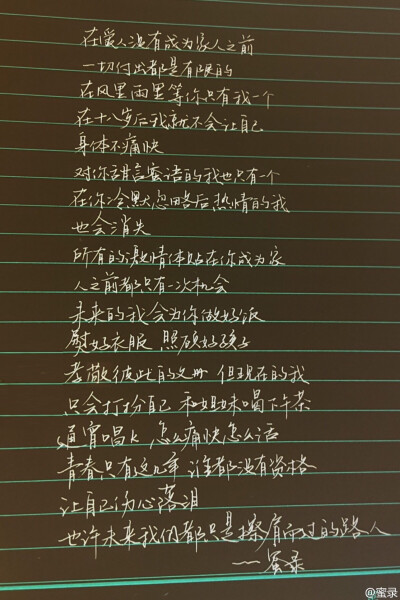 在爱人没有成为家人之前
一切付出都是有限的
在风里雨里等你只有我一个
在十八岁后我就不会让自己
身体不痛快
对你甜言蜜语的我也只有一个
在你冷默忽略后热情的我
也会消失
所有的激情体贴在你成为家
人之前都只有一次机会
未来的我会为你做好饭
熨好衣服 照顾好孩子
孝敬彼此的父母 但现在的我
只会打扮自己 和姐妹喝下午茶
通宵唱K 怎么痛快怎么活
青春只有这几年 谁都没有资格
让自己伤心落泪
也许未来我们都只是擦肩而过的路人
——蜜录
@蜜录